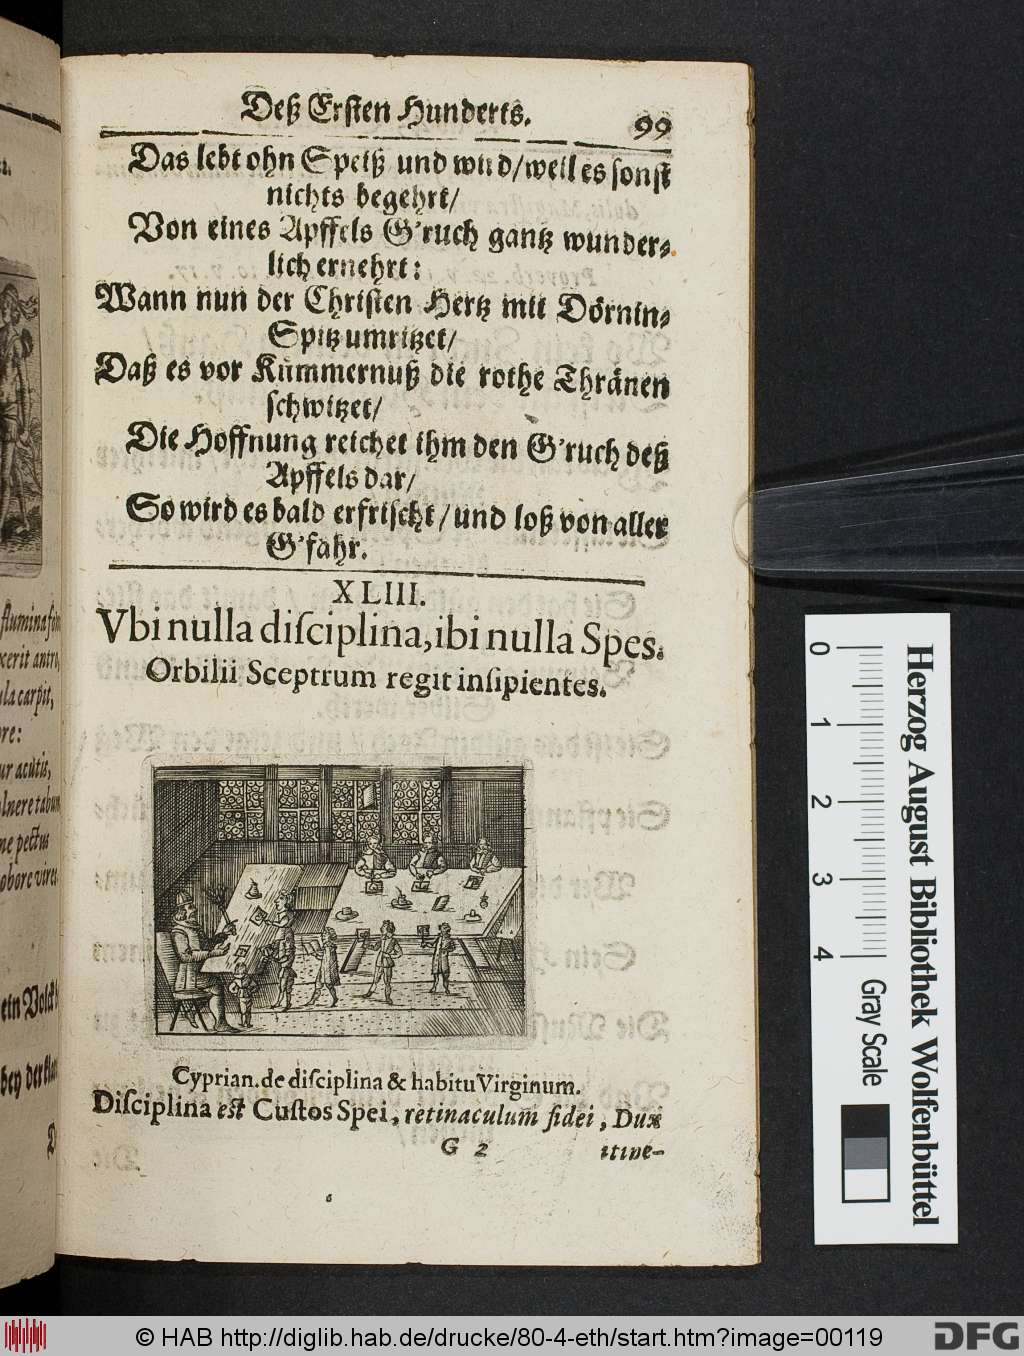 Deß Ersten Hunderts. 99
Das lebt ohn Speiß und wird/weil es sonst
nichts begehrt/
Von eines Apffels G'ruch gantz wunder-
lich ernehrt:
Wann nun der Christen Hertz mit Dörnin-
Spitz umritzet/
Daß es vor Kümmernuß die rothe Thränen
schwitzet/
Die Hoffnung reichet ihm den G'ruch deß
Apffels dar/
So wird es bald erfrischt/und loß von aller
G'fahr.
XLIII.
Vbi nulla disciplina, ibi nulla Spes.
Orbilii Sceptrum regit insipientes.
Cyprian. de disciplina & habitu Virginum.
Disciplina est Custos Spei, retinaculum fidei, Dux
G 2 itine-
flumina
antro,
carpit,
acutis,
pectus
ein Volck
bey der
0 1 2 3 4
Gray Scale
Herzog August Bibliothek Wolfenbüttel
© HAB http://diglib.hab.de/drucke/80-4-eth/start.htm?image=00119
DFG